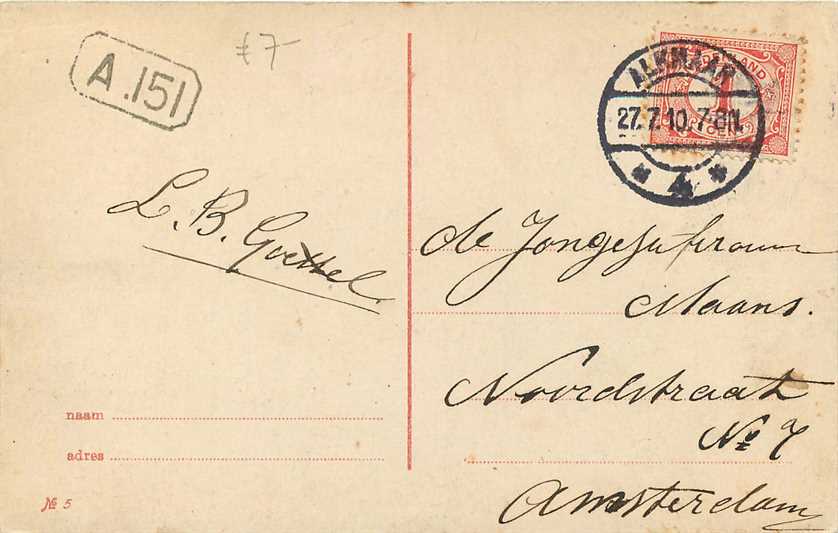 A.151
£ 7-
NEDERLAND
1
CENT
ALKMAAR
27.7.10. 7-8N.
* 4 *
L. B. Goettel
de Jongejufvrouw
Maans.
Noordstraat
No 7
Amsterdam
naam
adres
№ 5